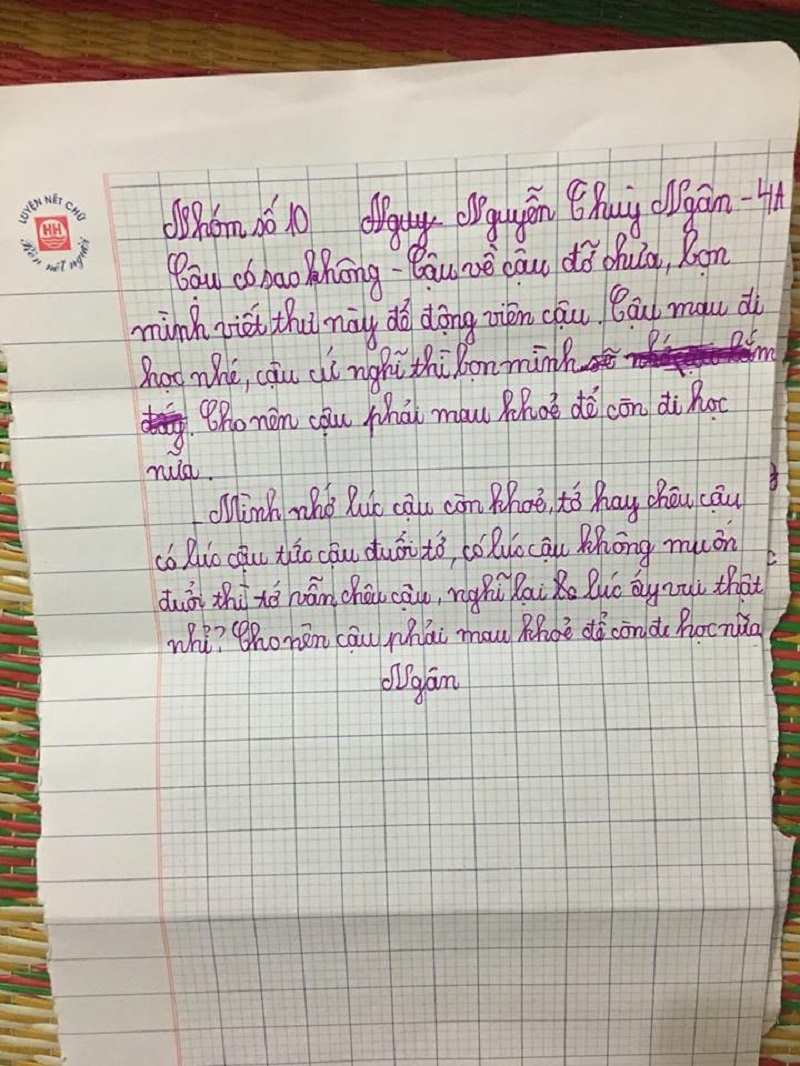 LUYỆN NÉT CHỮ
HH
Rèn nết người
Nhóm số 10 Nguy Nguyễn Thuỳ Ngân - 4A
Cậu có sao không - Cậu về cậu đỡ chưa, bọn
mình viết thư này để động viên cậu. Cậu mau đi
học nhé, cậu cứ nghĩ thì bọn mình sẽ
Cho nên cậu phải mau khoẻ để còn đi học
nữa.
Mình nhớ lúc cậu còn khoẻ, tớ hay chêu cậu
có lúc cậu tức cậu đuổi tớ, có lúc cậu không muốn
đuổi thì tớ vẫn chêu cậu, nghĩ lại lúc ấy vui thật
nhỉ? Cho nên cậu phải mau khoẻ để còn đi học nữa
Ngân